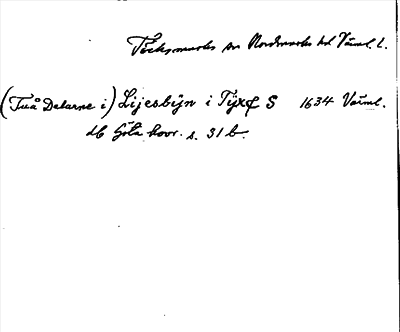 Töcksmarks sn Nordmarks hd Värml. l.
(Tuå Delarne i) Lijersbÿn i Tÿxƒ S 1634 Värml.
db Göta hovr. s. 31 b.